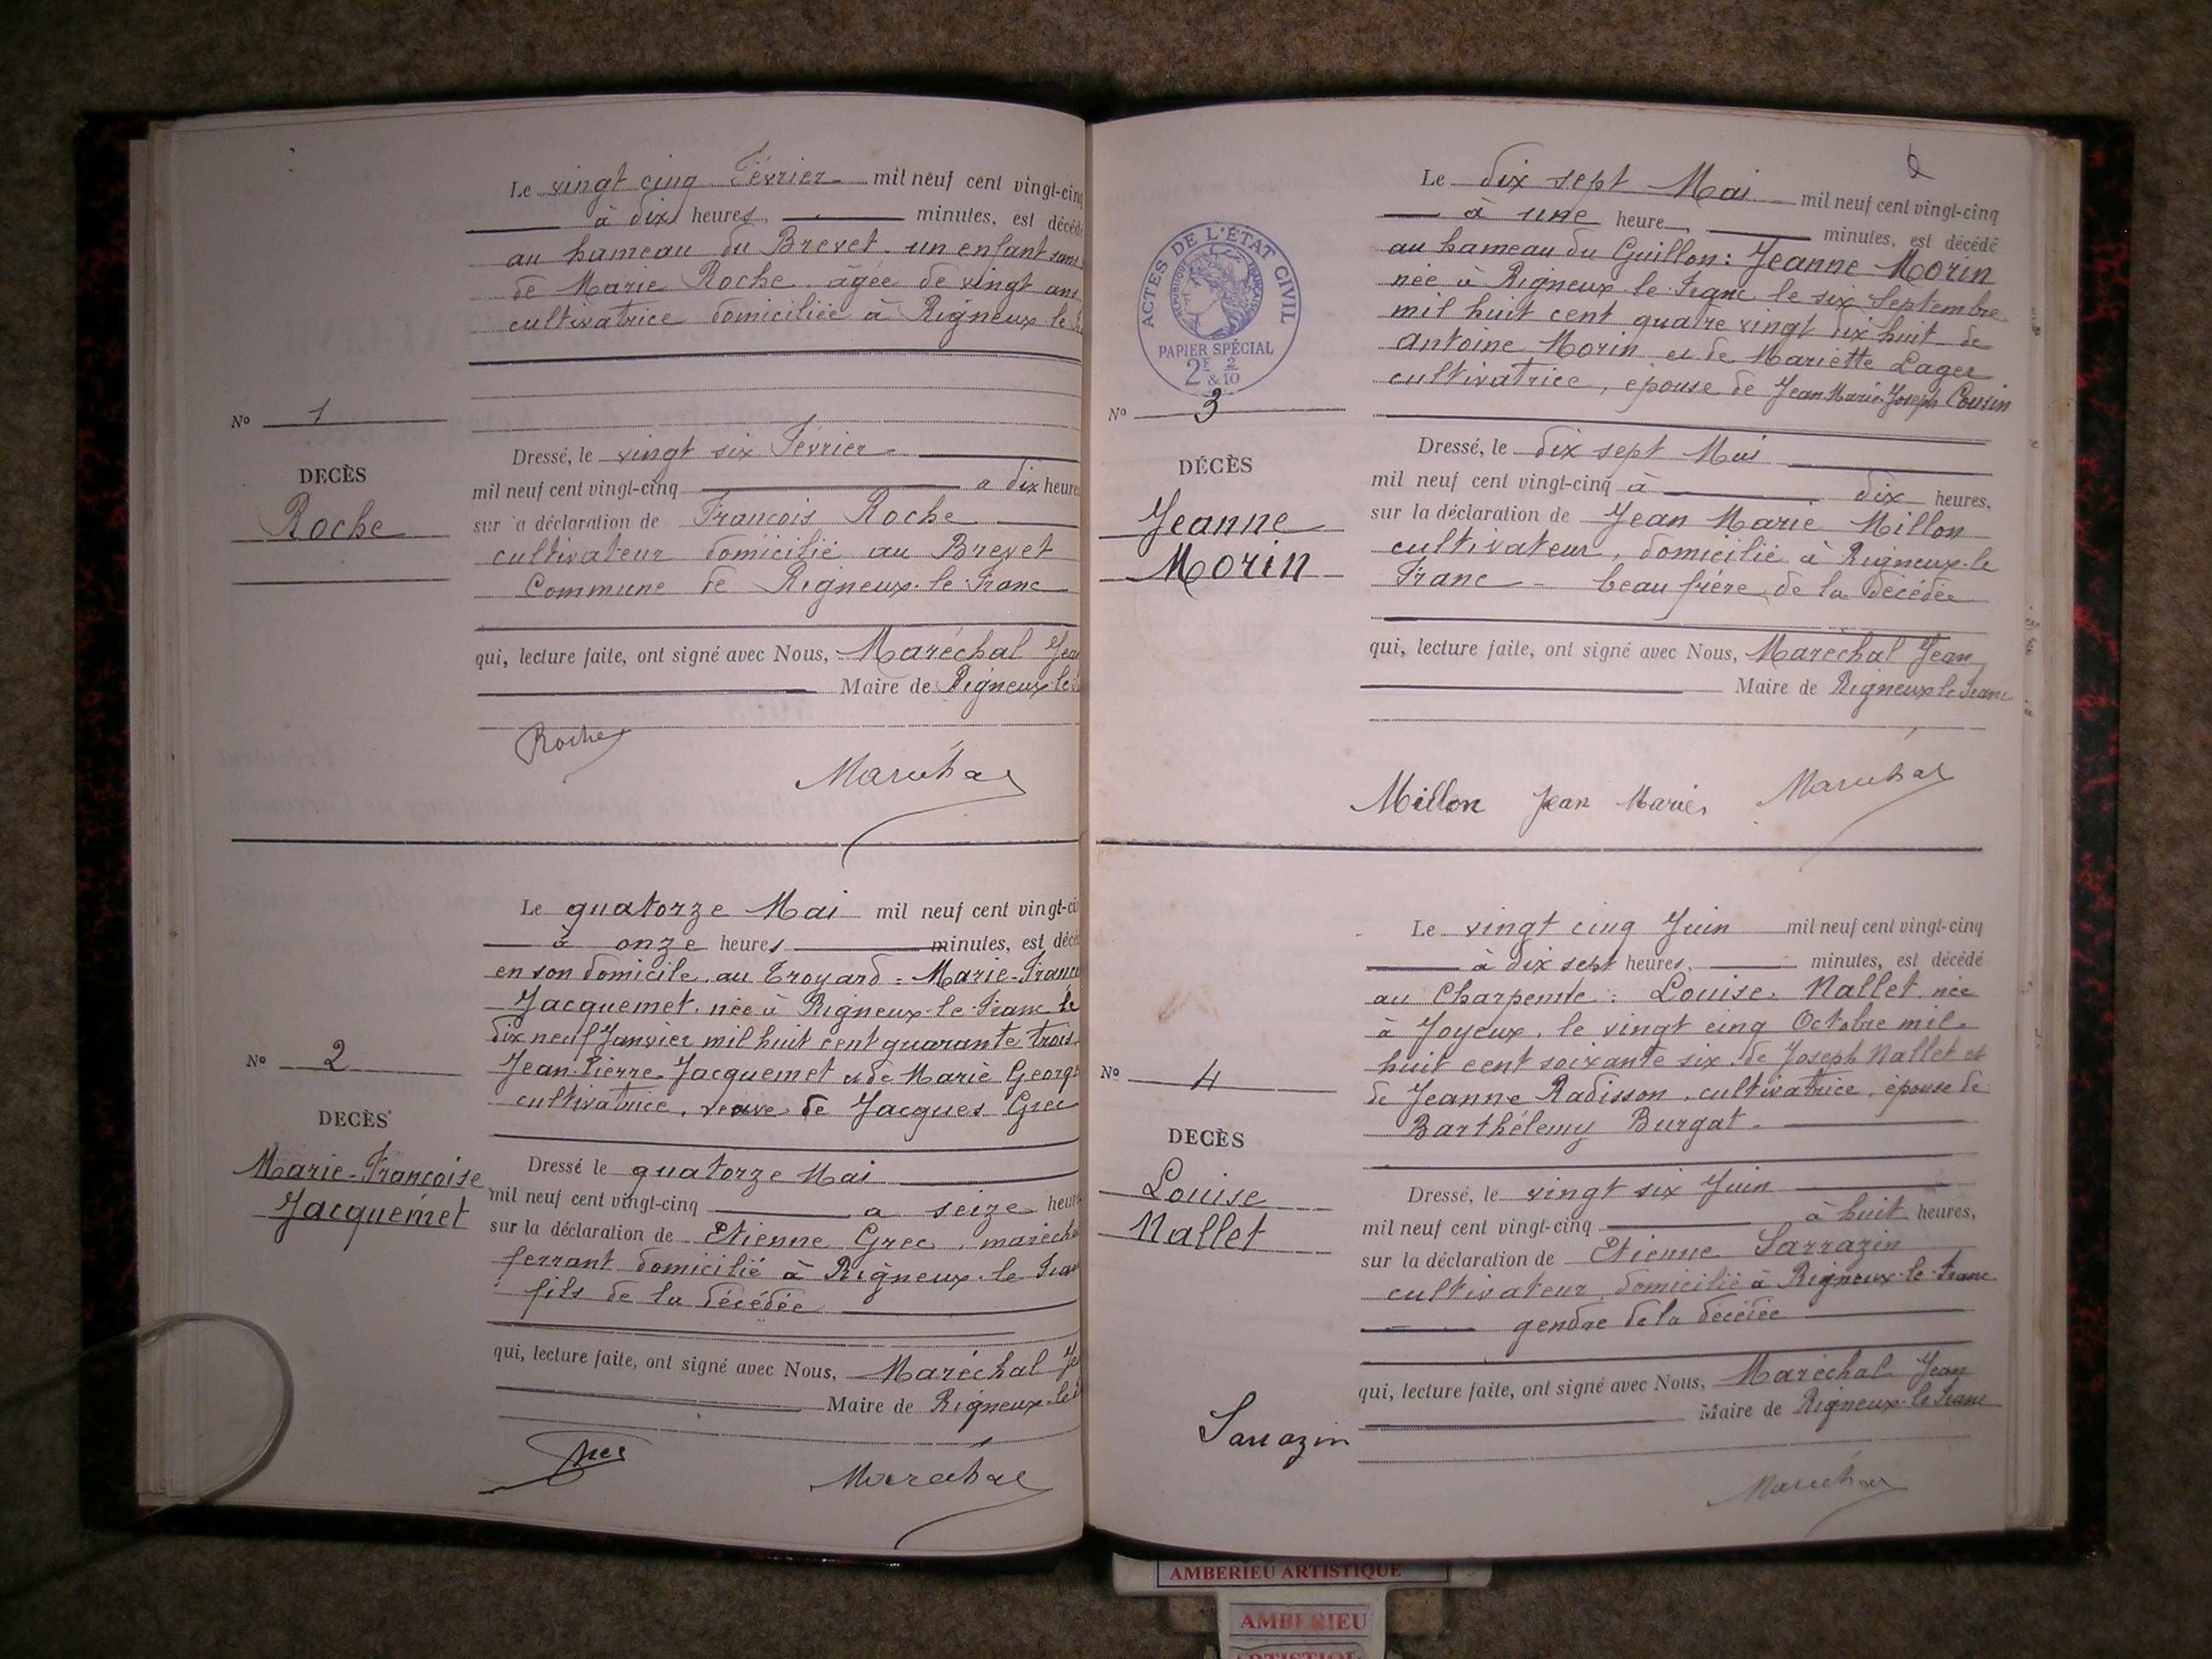 Le vingt cinq Février mil neuf cent vingt-cinq
à dix heures, minutes, est décédé
au hameau du Brevet. un enfant sans
de Marie Roche. âgée de vingt ans
cultivatrice domiciliée à Rigneux-le
No 1
DECÈS
Roche
Dressé, le vingt six Février
mil neuf cent vingt-cinq a dix heures
sur a déclaration de François Roche
cultivateur domicilié au Brevet
Commune de Rigneux-le-Franc
qui, lecture faite, ont signé avec Nous, Maréchal Jean
Maire de Rigneux-le
Roche
Maréchal
Le quatorze Mai mil neuf cent vingt-ci
à onze heures minutes, est décé
en son domicile, au Troyard = Marie-Franço
Jacquemet. née à Rigneux-le-Franc le
dix neuf Janvier mil huit cent quarante trois.
Jean-Pierre Jacquemet et de Marie George
cultivatrice, veuve de Jacques Grec
No 2
DECÈS
Marie-Françoise
Jacquemet
Dressé le quatorze Mai
mil neuf cent vingt-cinq a seize heure
sur la déclaration de Etienne Grec, marécha
ferrant domicilié à Rigneux-le-Fran
fils de la décédée
qui, lecture faite, ont signé avec Nous, Maréchal Je
Maire de Rigneux-le
Grec
Maréchal
6
Le dix sept Mai mil neuf cent vingt-cinq
à une heure, minutes, est décédé
au hameau du Guillon: Jeanne Morin
née à Rigneux le Franc le six Septembre
mil huit cent quatre vingt dix huit de
Antoine Morin et de Mariette Lager
cultivatrice, épouse de Jean Marie Joseph Cousin
ACTES DE L'ÉTAT CIVIL
RÉPUBLIQUE FRANÇAISE
PAPIER SPÉCIAL
2E 2
&10
No 3
DÉCÈS
Jeanne
Morin
Dressé, le dix sept Mai
mil neuf cent vingt-cinq à dix heures,
sur la déclaration de Jean Marie Millon
cultivateur, domicilié à Rigneux-le
Franc - beau frère de la décédée
qui, lecture faite, ont signé avec Nous, Maréchal Jean
Maire de Rigneux le Franc
Millon Jean Marie
Maréchal
Le vingt cinq Juin mil neuf cent vingt-cinq
à dix sept heures, minutes, est décédé
au Charpenne : Louise Nallet née
à Joyeux, le vingt cinq Octobre mil
huit cent soixante six. de Joseph Nallet et
de Jeanne Radisson, cultivatrice, épouse de
Barthélemy Burgat.
No 4
DECÈS
Louise
Nallet
Dressé, le vingt six Juin
mil neuf cent vingt-cinq à huit heures,
sur la déclaration de Etienne Sarrazin
cultivateur, domicilié à Rigneux-le-Franc
gendre de la décédée
qui, lecture faite, ont signé avec Nous, Maréchal Jean
Maire de Rigneux-le Franc
Sarrazin
Maréchal
AMBERIEU ARTISTIQUE
AMBERIEU